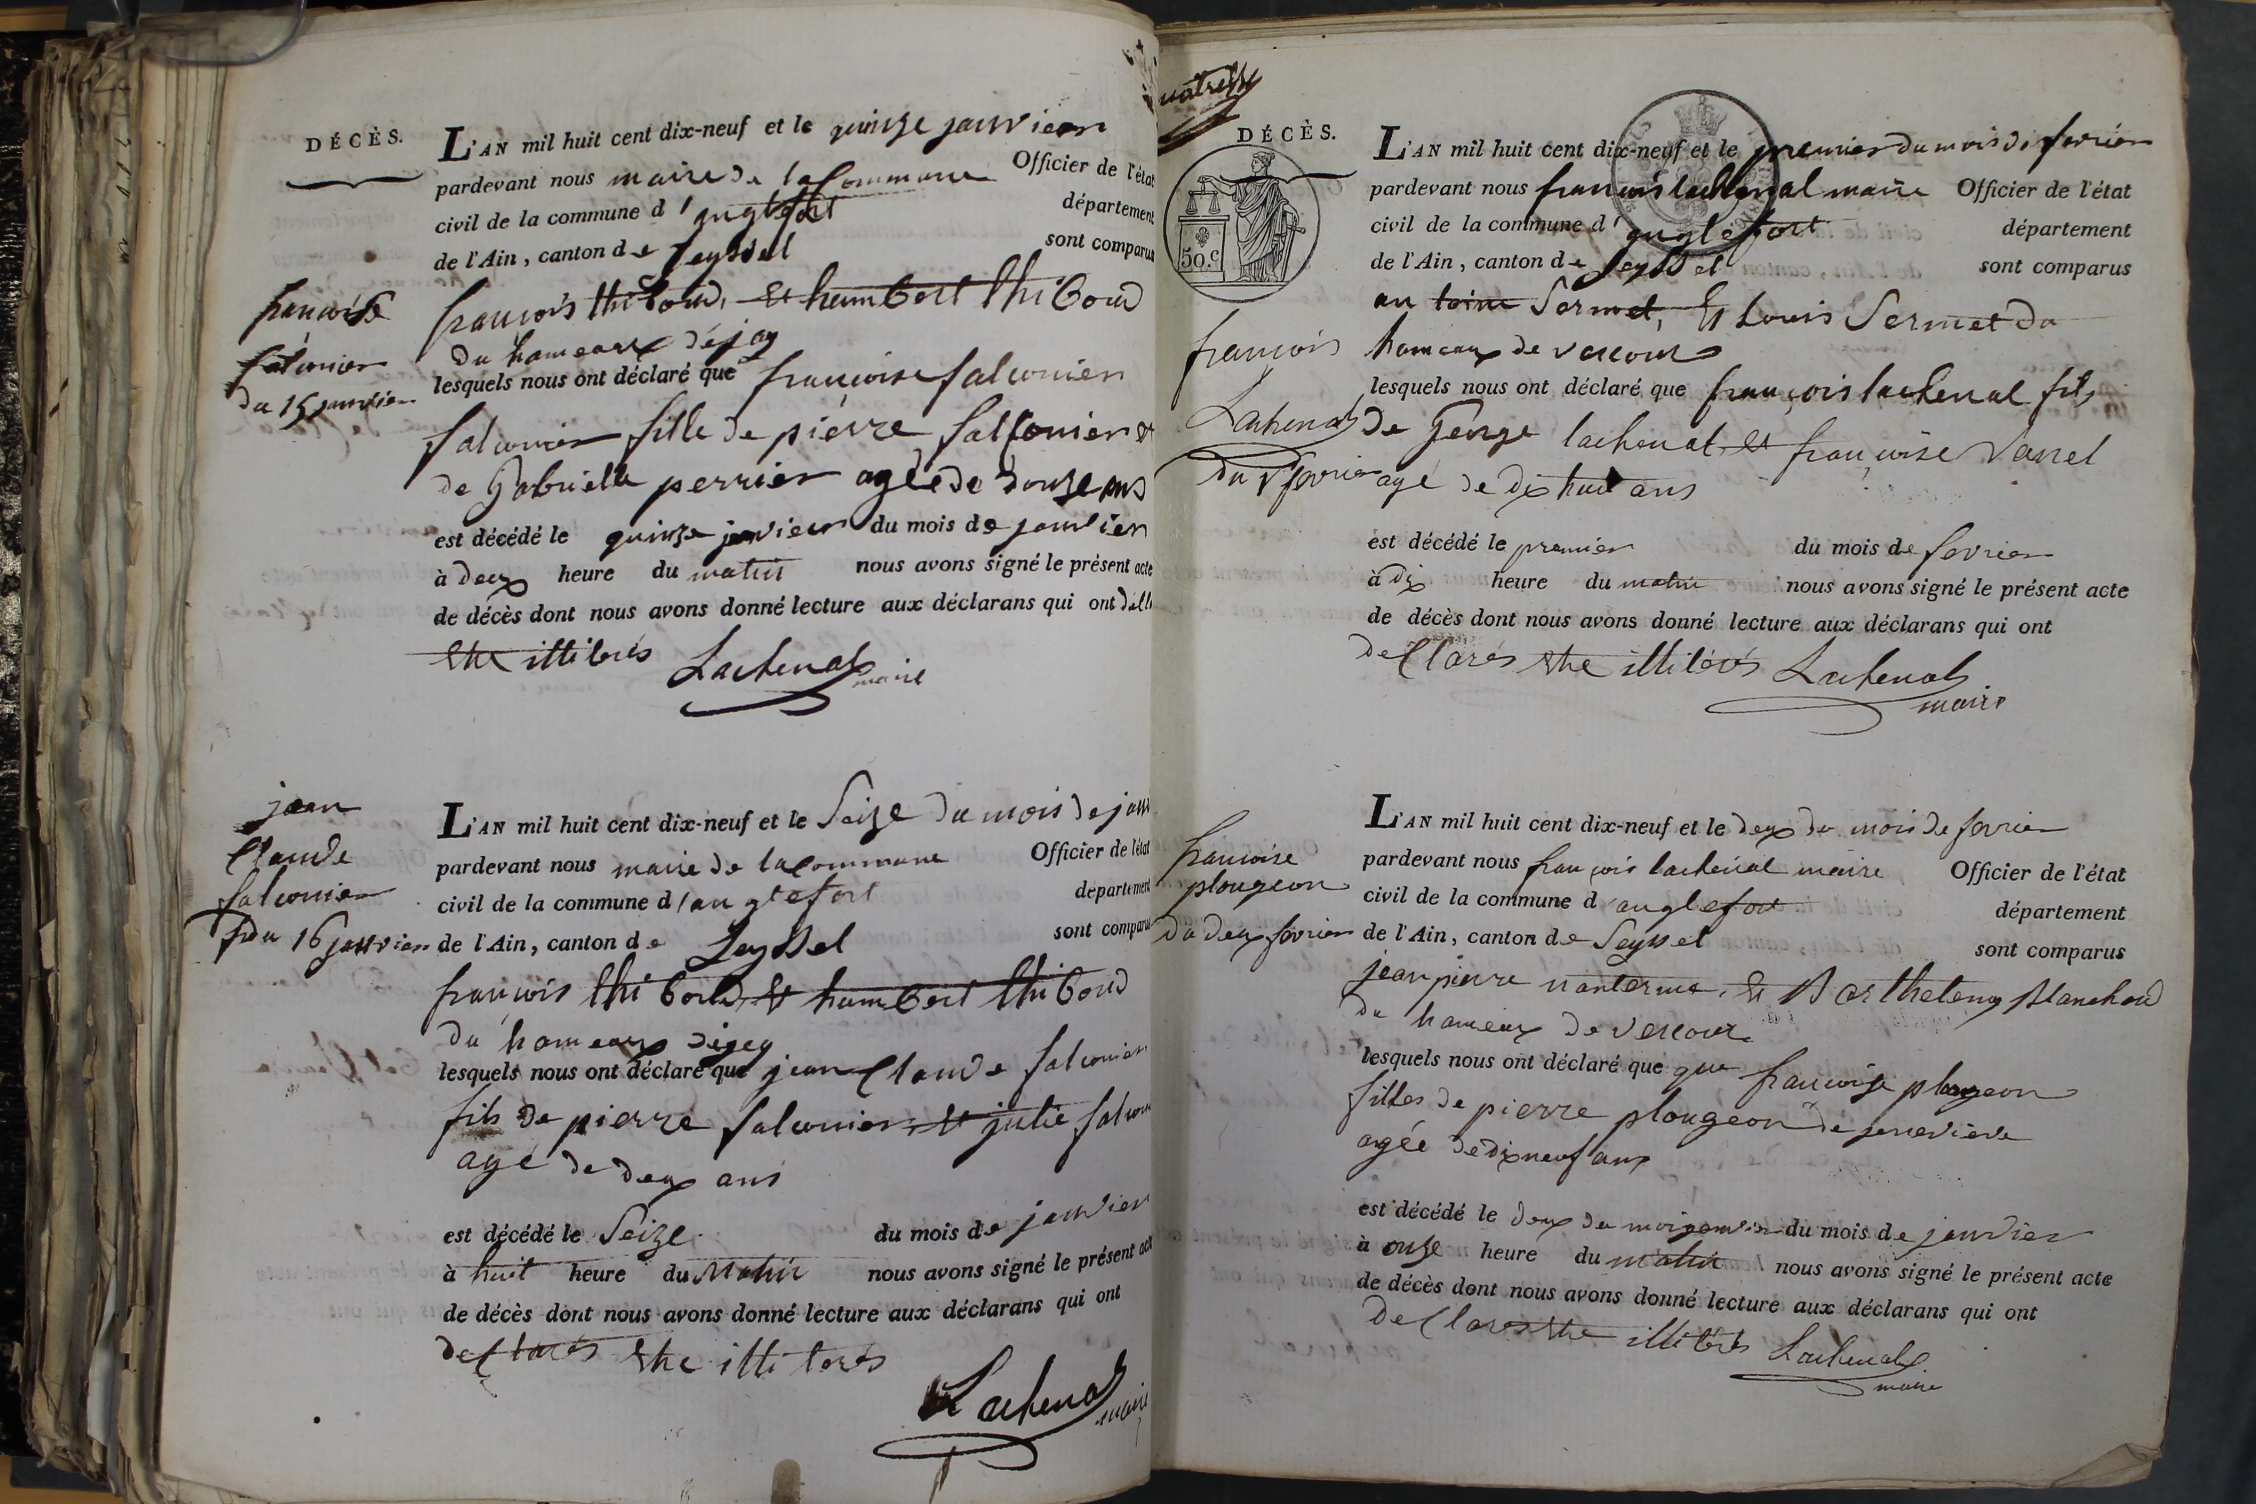 DÉCÈS.
L'AN mil huit cent dix-neuf et le quinze janvier
pardevant nous maire de la Commune Officier de l'état
civil de la commune d'anglefort département
de l'Ain, canton de Seyssel sont comparus
françois thiboud, et humbert thiboud
du hameaux déjoy
françoise
falconier
du 15 janvier
lesquels nous ont déclaré que françoise falconier
falconier fille de pierre falconier et
de Gabrielle perrier agée de douze ans
est décédé le quinze janvier du mois de janvier
à deux heure du matin nous avons signé le présent acte
de décès dont nous avons donné lecture aux déclarans qui ont
etre illiterés Lachenal
maire
jean
Claude
falconier
du 16 janvier
L'AN mil huit cent dix-neuf et le Seize du mois de janv
pardevant nous maire de la Commune Officier de l'état
civil de la commune d'anglefort département
de l'Ain, canton de Seyssel sont comparus
françois thiboud, et humbert thiboud
du hameaux
lesquels nous ont déclaré que jean Claude falconier
fils de pierre falconier et julie falcon
agé de deux ans
est décédé le Seize du mois de janvier
à huit heure du Matin nous avons signé le présent acte
de décès dont nous avons donné lecture aux déclarans qui ont
declarés etre illiterés
Lachenal
maire
DÉCÈS.
50.c
L'AN mil huit cent dix-neuf et le premier du mois de fevrier
pardevant nous françois lachenal maire Officier de l'état
civil de la commune d'anglefort département
de l'Ain, canton de Seyssel sont comparus
antoine Sermet, et Louis Sermet du
hameaux de vescours
françois
Lachenal
du 1r fevrier
lesquels nous ont déclaré que françois lachenal fils
de George lachenal et françoise Vanel
agé de dix huit ans
est décédé le premier du mois de fevrier
à dix heure du matin nous avons signé le présent acte
de décès dont nous avons donné lecture aux déclarans qui ont
declarés etre illiterés Lachenal
maire
françoise
plougeon
du deux fevrier
L'AN mil huit cent dix-neuf et le deux du mois de fevrier
pardevant nous françois lachenal maire Officier de l'état
civil de la commune d'anglefort département
de l'Ain, canton de Seyssel sont comparus
jean pierre nanterme, et Barthelemy Blanchard
du hameaux de vescour
lesquels nous ont déclaré que que françoise plougeon
filles de pierre plougeon de genevieve
agée de dix neuf ans
est décédé le deux du mois janvier du mois de janvier
à onze heure du matin nous avons signé le présent acte
de décès dont nous avons donné lecture aux déclarans qui ont
declares etre illiterés Lachenal
maire